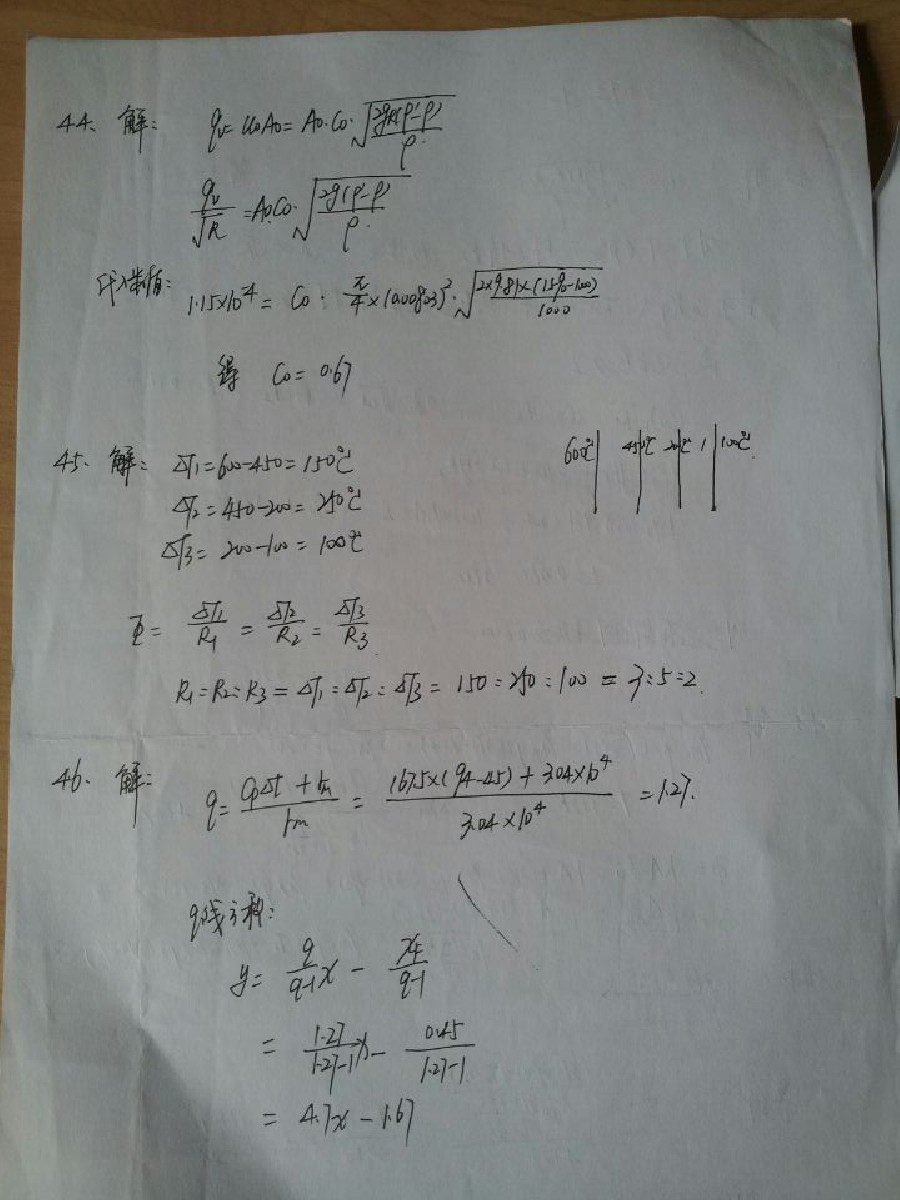 44、解: qv=u₀A₀=A₀·C₀·√(2gR(ρ'-ρ)/ρ)
qv/√R=A₀C₀·√(2g(ρ'-ρ)/ρ)
代入数值:
1.15×10⁻⁴= C₀·π/4×(0.00823)²·√(2×9.81×(1590-1000)/1000)
得 C₀=0.67
45、解: ΔT₁=600-450=150℃
600℃ 450℃ 200℃ 100℃
ΔT₂=450-200=250℃
ΔT₃=200-100=100℃
Φ=ΔT₁/R₁=ΔT₂/R₂=ΔT₃/R₃
R₁:R₂:R₃=ΔT₁:ΔT₂:ΔT₃=150:250:100=3:5:2.
46、解:
q=(CpΔt+rm)/rm=(167.5×(94-45)+3.04×10⁴)/(3.04×10⁴)=1.27.
q线方程:
y=q/(q-1)x-xF/(q-1)
=1.27/(1.27-1)x-0.45/(1.27-1)
=4.7x-1.67